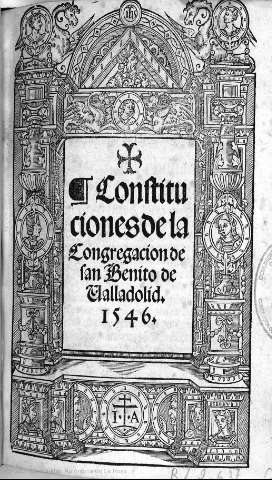 IHS
¶ Constitu
ciones de la
Congregacion de
san Benito de
Valladolid.
1546.
I A